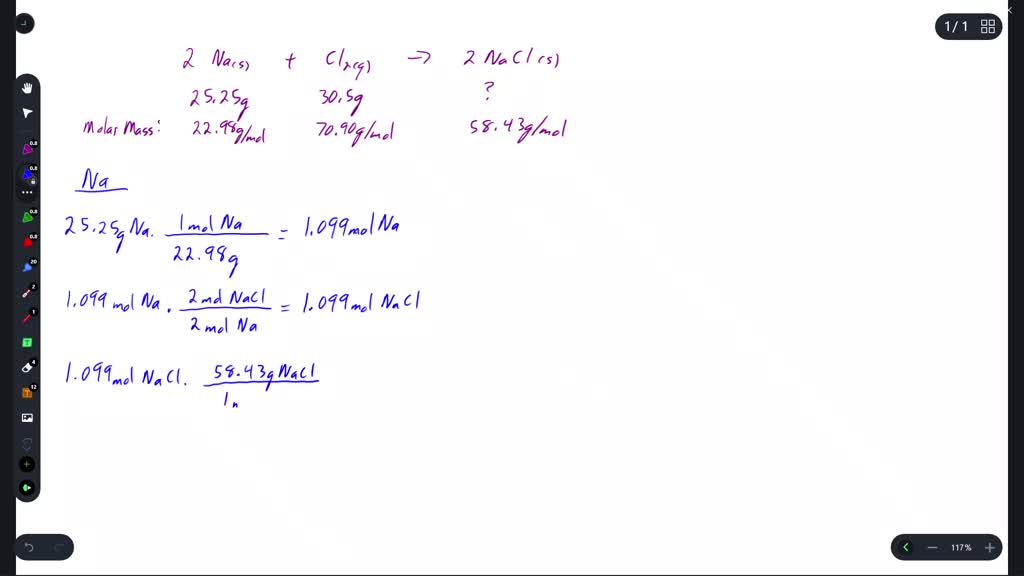 1/1
2 Na(s) + Cl2(g) → 2 NaCl(s)
25.25g 30.5g ?
Molar Mass: 22.98g/mol 70.90g/mol 58.43g/mol
Na
25.25g Na · 1 mol Na / 22.98g = 1.099 mol Na
1.099 mol Na · 2 mol NaCl / 2 mol Na = 1.099 mol NaCl
1.099 mol NaCl · 58.43g NaCl / 1
117%